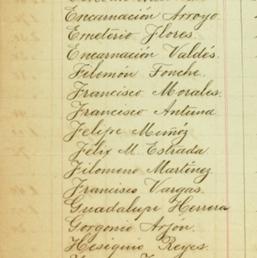 Encarnación Arroyo.
Emeterio Flores.
Encarnación Valdés.
Filemón Fonche.
Francisco Morales.
Francisco Antuna
Felipe Muñoz
Félix M. Estrada
Filomeno Martínez
Francisco Vargas.
Guadalupe Herrera
Gorgonio Arjón.
Hesiquio Reyes.